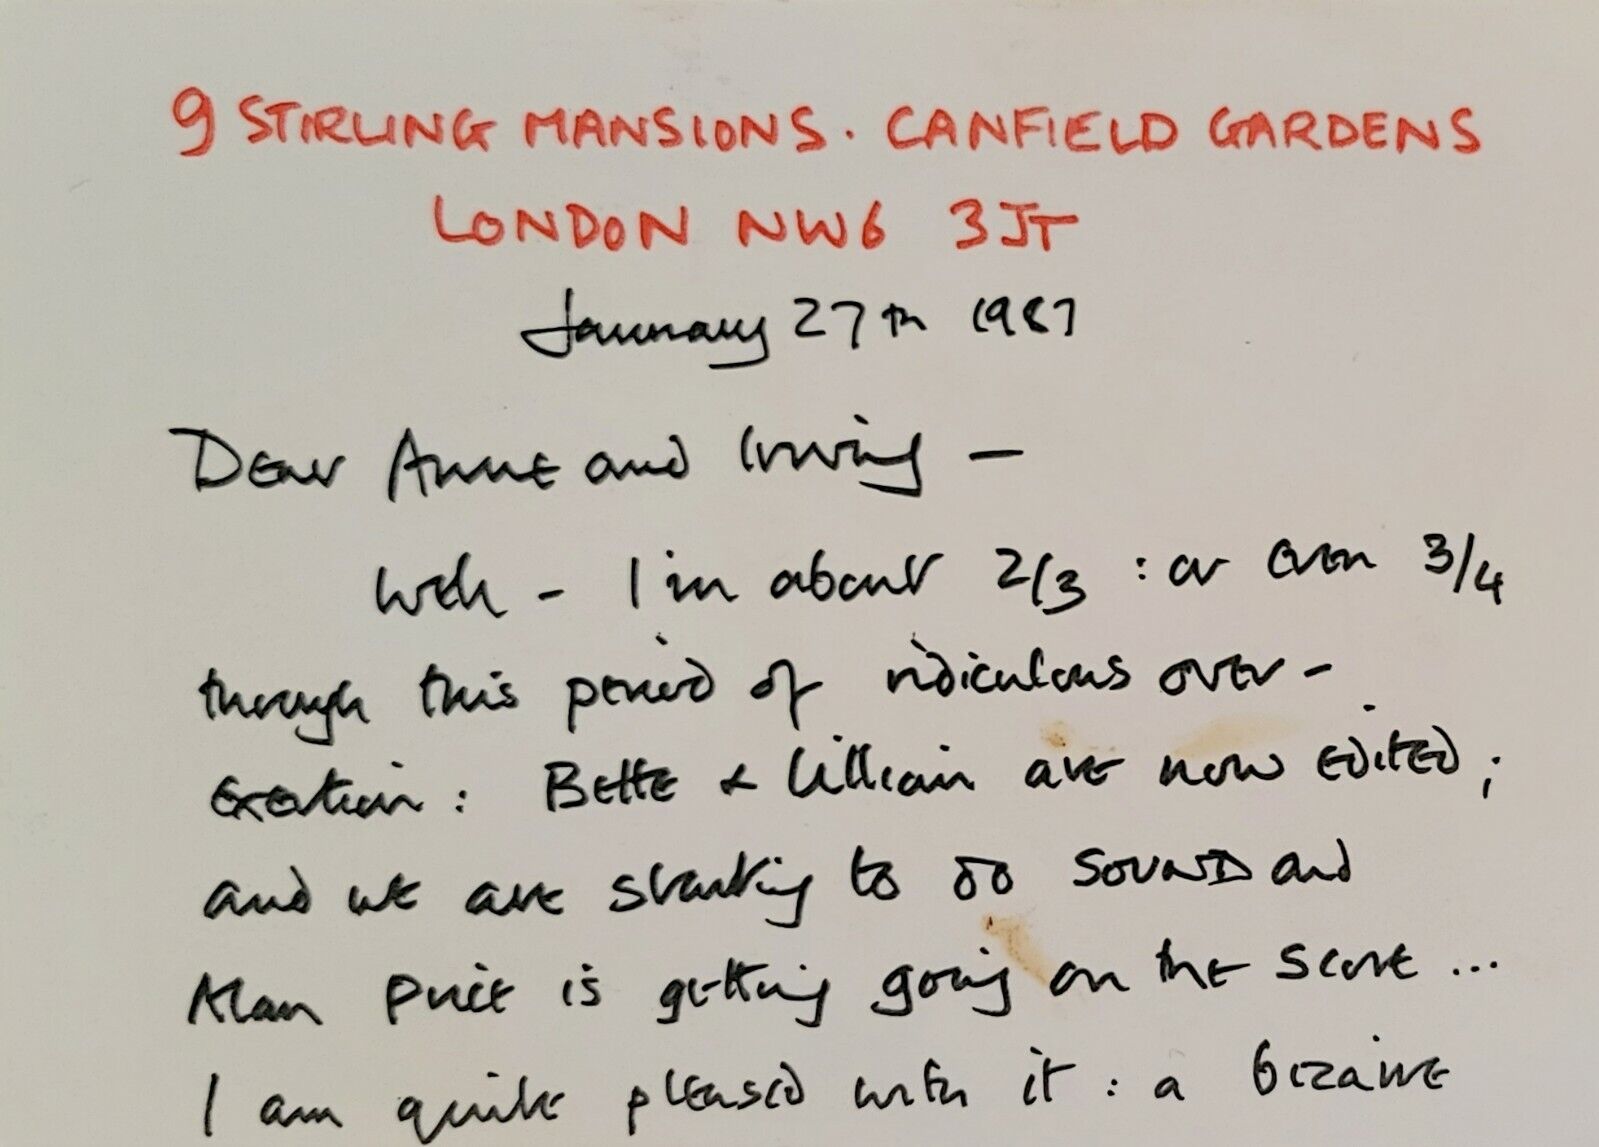 9 STIRLING MANSIONS. CANFIELD GARDENS
LONDON NW6 3JT
January 27th 1987
Dear Anne and Irving —
Well - I'm about 2/3 : or even 3/4
through this period of ridiculous over-
exertion : Bette & Lillian are now edited ;
and we are starting to do sound and
Alan Price is getting going on the score ...
I am quite pleased with it : a bizarre